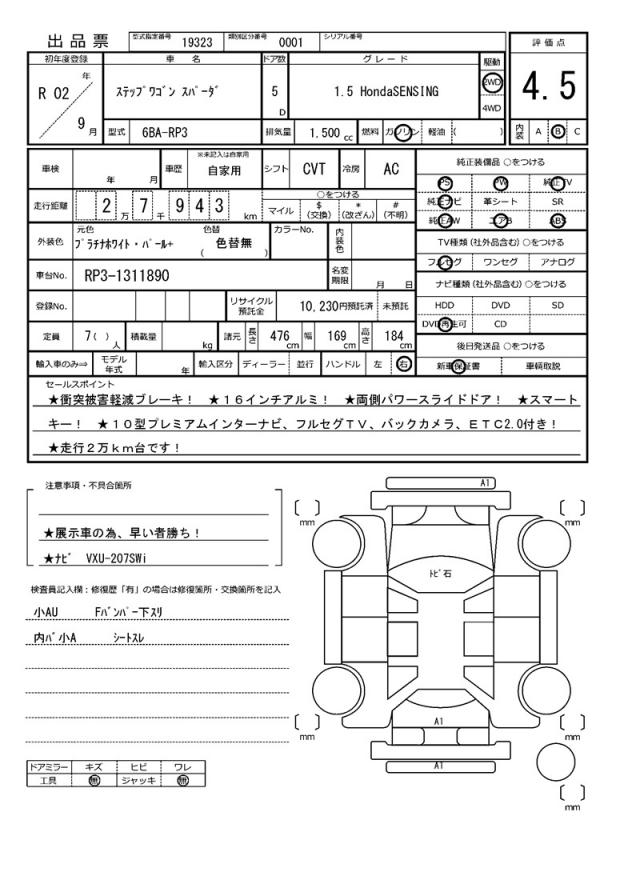 出品票 型式指定番号 19323 類別区分番号 0001 シリアル番号
評価点
4.5
内装 A B C
初年度登録 車名 ドア数 グレード 駆動
R 02 年 9 月
ｽﾃｯﾌﾟﾜｺﾞﾝ ｽﾊﾟｰﾀﾞ 5 D 1.5 HondaSENSING 2WD
4WD
型式 6BA-RP3 排気量 1.500 cc 燃料 ガソリン 軽油 ( )
車検 年 月 車歴 ※未記入は自家用 自家用 シフト CVT 冷房 AC
走行距離 2 万 7 千 9 4 3 km
○をつける
マイル $ (交換) * (改ざん) # (不明)
外装色 元色 ﾌﾟﾗﾁﾅﾎﾜｲﾄ・ﾊﾟｰﾙ+ 色替 ( 色替無 ) カラーNo. 内装色
車台No. RP3-1311890 名変期限 月 日
登録No. リサイクル預託金 10,230円預託済 未預託
定員 7( ) 人 積載量 kg 諸元 長さ 476 cm 幅 169 cm 高さ 184 cm
輸入車のみ⇒ モデル年式 年 輸入区分 ディーラー 並行 ハンドル 左 右
純正装備品 ○をつける
PS PW 純正TV
純正ナビ 革シート SR
純正AW エアB ABS
TV種類 (社外品含む) ○をつける
フルセグ ワンセグ アナログ
ナビ種類 (社外品含む) ○をつける
HDD DVD SD
DVD再生可 CD
後日発送品 ○をつける
新車保証書 車輌取説
セールスポイント
★衝突被害軽減ブレーキ！ ★１６インチアルミ！ ★両側パワースライドドア！ ★スマート
キー！ ★１０型プレミアムインターナビ、フルセグＴＶ、バックカメラ、ＥＴＣ2.0付き！
★走行２万ｋｍ台です！
注意事項・不具合箇所
★展示車の為、早い者勝ち！
★ﾅﾋﾞ VXU-207SWi
検査員記入欄：修復歴「有」の場合は修復箇所・交換箇所を記入
小AU Fﾊﾞﾝﾊﾟｰ下ｽﾘ
内ﾊﾞ小A ｼｰﾄｽﾚ
ドアミラー キズ ヒビ ワレ
工具 無 ジャッキ 無
A1
[ ] mm [ ] mm
ﾄﾋﾞ石
A1
[ ] mm [ ] mm
A1
[ ] mm